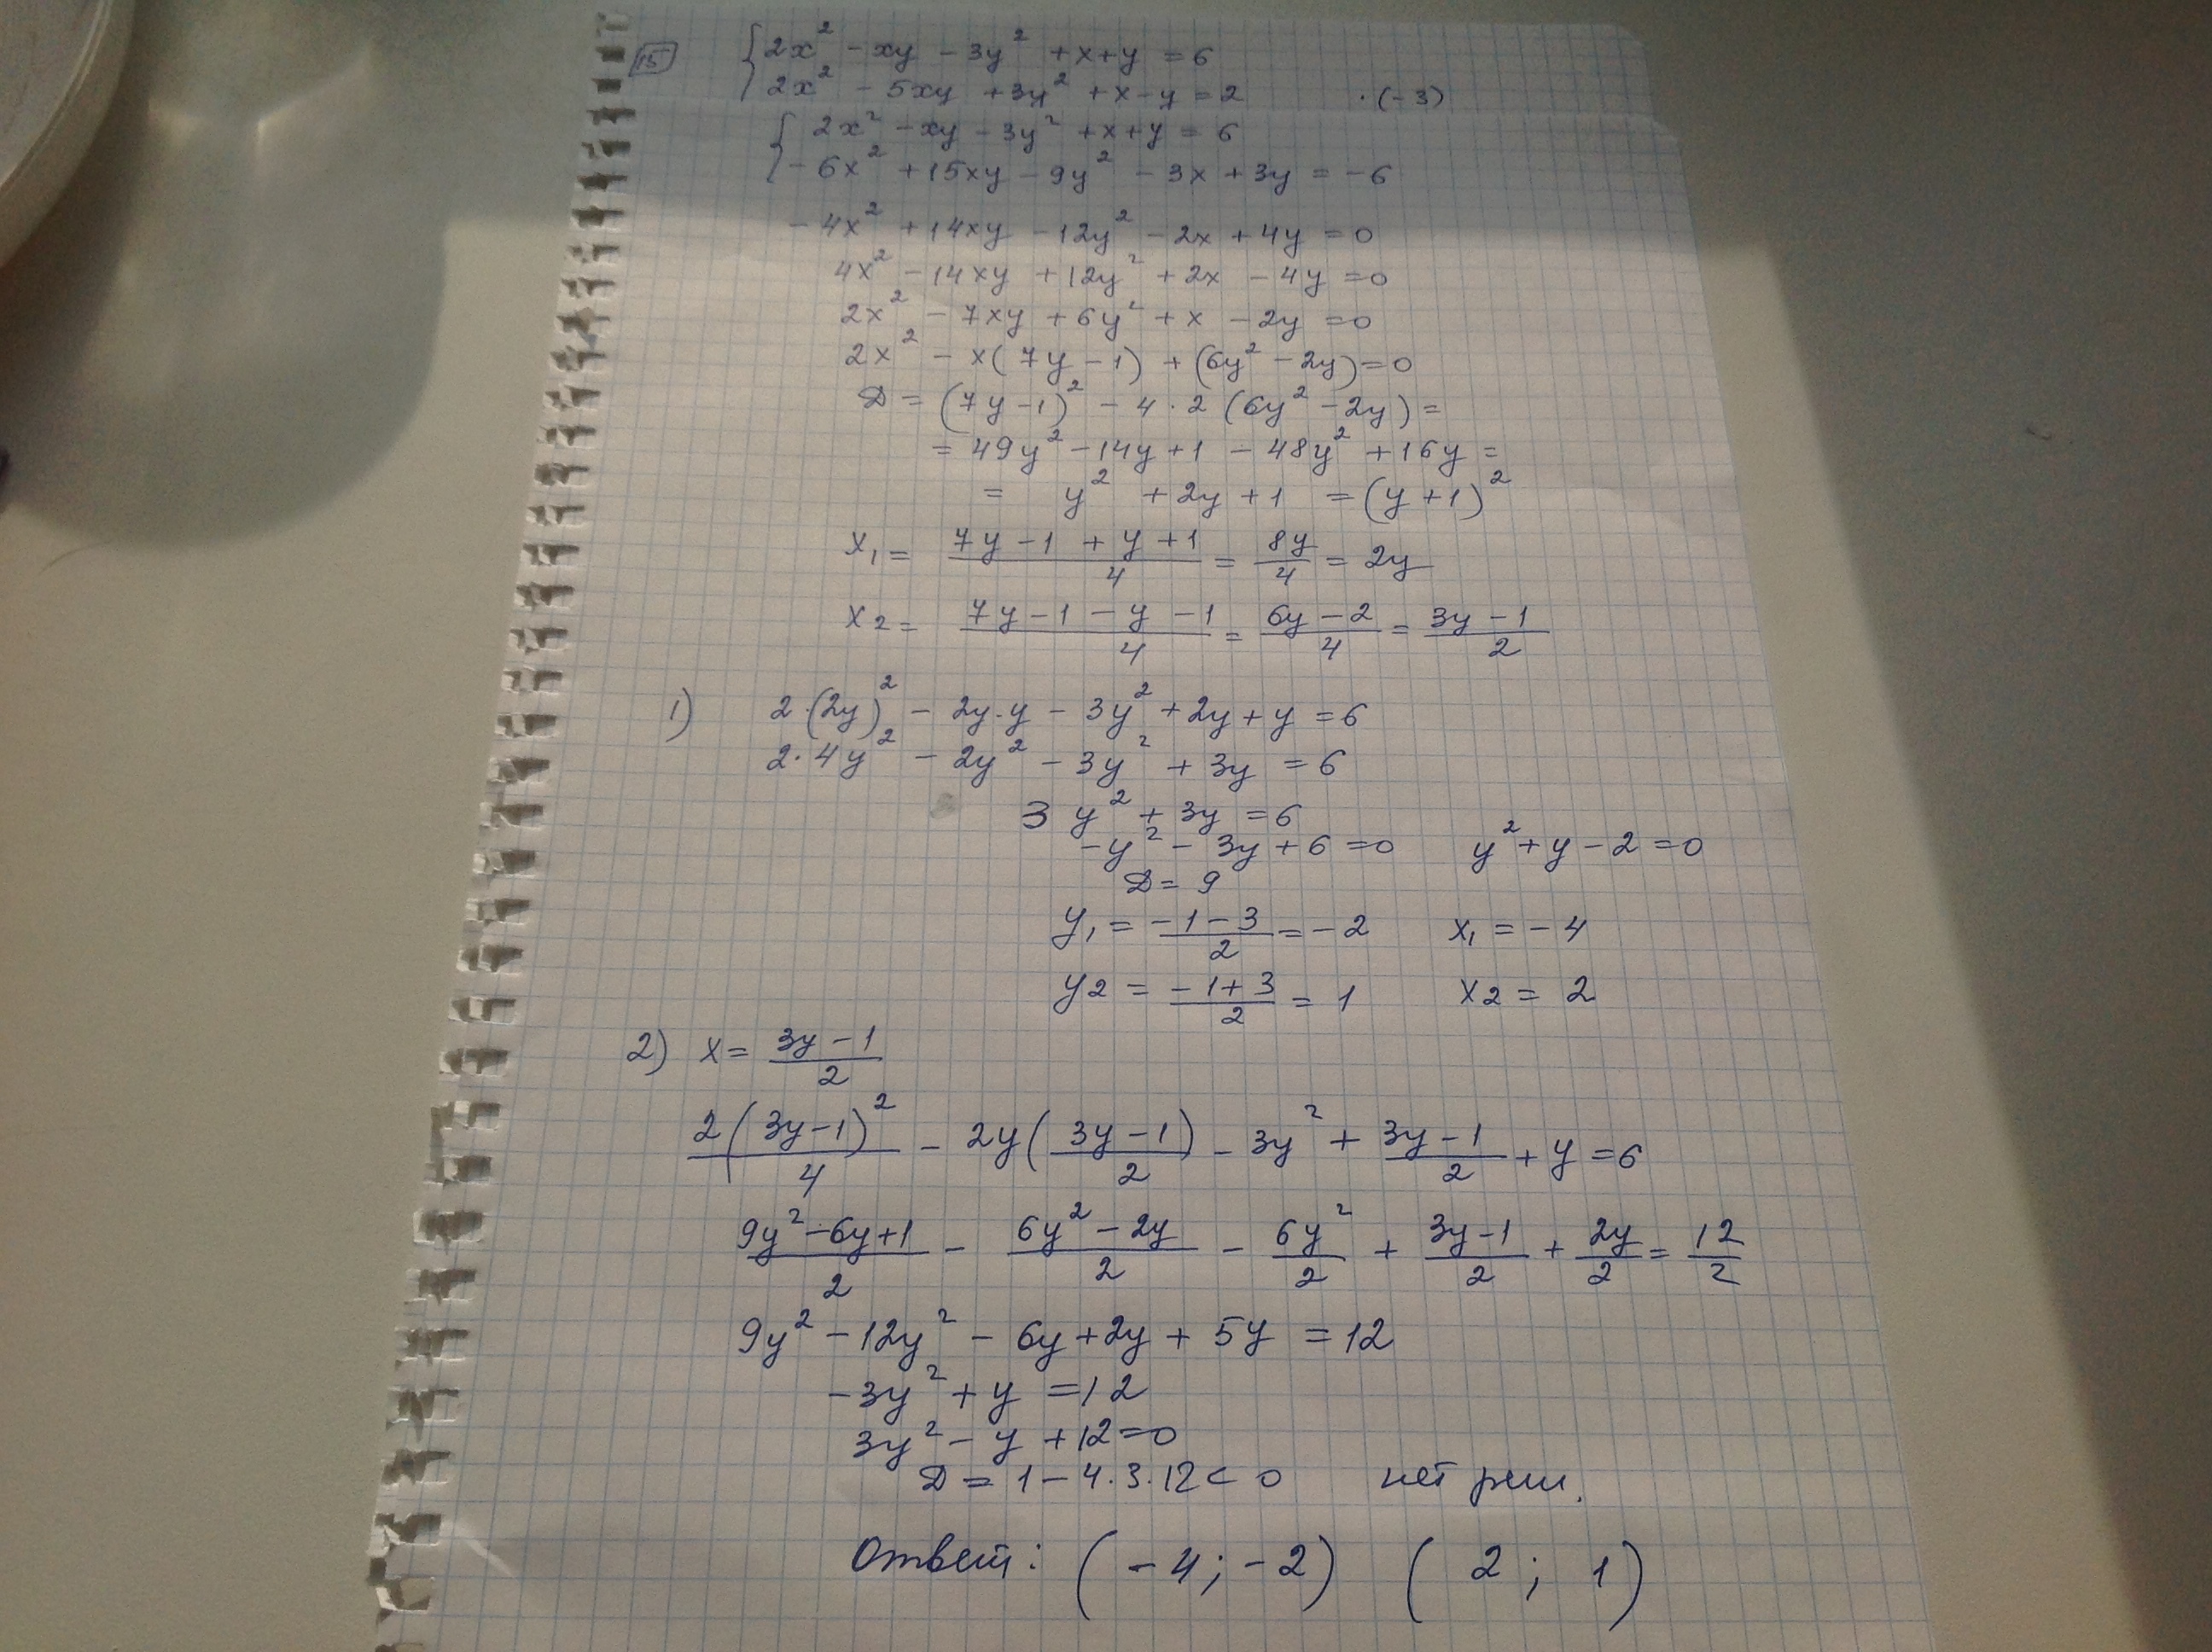 15 { 2x² - xy - 3y² + x + y = 6
2x² - 5xy + 3y² + x - y = 2 · (-3)
{ 2x² - xy - 3y² + x + y = 6
- 6x² + 15xy - 9y² - 3x + 3y = -6
- 4x² + 14xy - 12y² - 2x + 4y = 0
4x² - 14xy + 12y² + 2x - 4y = 0
2x² - 7xy + 6y² + x - 2y = 0
2x² - x(7y - 1) + (6y² - 2y) = 0
D = (7y - 1)² - 4 · 2 (6y² - 2y) =
= 49y² - 14y + 1 - 48y² + 16y =
= y² + 2y + 1 = (y + 1)²
x₁ = (7y - 1 + y + 1)/4 = 8y/4 = 2y
x₂ = (7y - 1 - y - 1)/4 = (6y - 2)/4 = (3y - 1)/2
1) 2 · (2y)² - 2y · y - 3y² + 2y + y = 6
2 · 4y² - 2y² - 3y² + 3y = 6
3y² + 3y = 6
-y² - 3y + 6 = 0 y² + y - 2 = 0
D = 9
y₁ = (-1 - 3)/2 = -2 x₁ = -4
y₂ = (-1 + 3)/2 = 1 x₂ = 2
2) x = (3y - 1)/2
2(3y - 1)²/4 - 2y((3y - 1)/2) - 3y² + (3y - 1)/2 + y = 6
(9y² - 6y + 1)/2 - (6y² - 2y)/2 - 6y²/2 + (3y - 1)/2 + 2y/2 = 12/2
9y² - 12y² - 6y + 2y + 5y = 12
-3y² + y = 12
3y² - y + 12 = 0
D = 1 - 4 · 3 · 12 < 0 нет реш.
Ответ: (-4; -2) (2; 1)